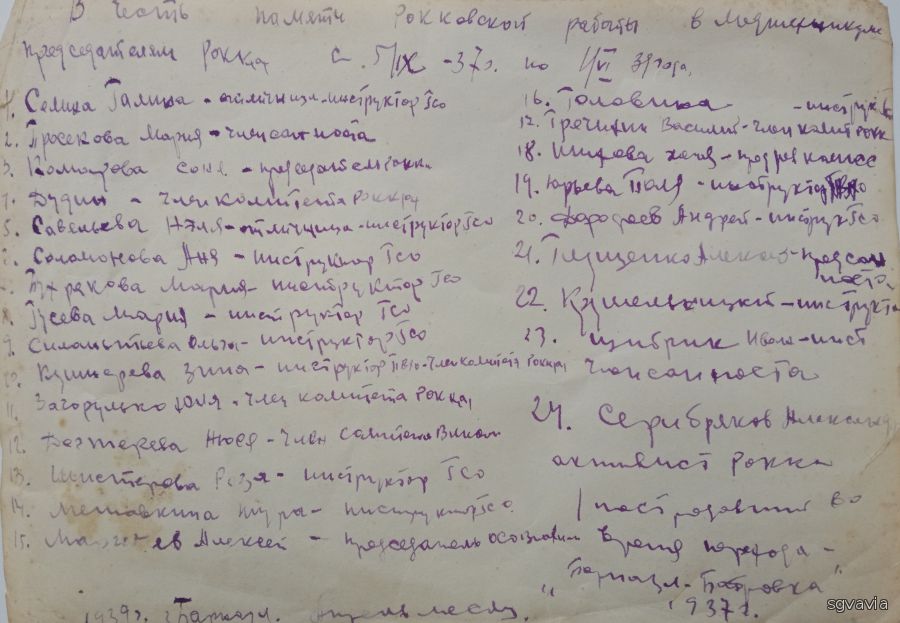 В честь памяти Рокковской работы в медтехникуме
председателям Рокка с 5/IX -37г. по 1/VI 39 года,
1. Селина Галина - отличница-инструктор ГСО
2. Просекова Мария - член санпоста
3. Комарова Соня - председатель Рокка
4. Дудин - член комитета Рокка
5. Савельева Нэля - отличница-инструктор ГСО
6. Соломонова Аня - инструктор ГСО
Мария - инструктор ГСО
8. Гусева Мария - инструктор ГСО
9. Силантьева Ольга - инструктор ГСО
10. Кушнерева Зина - инструктор ПВХО-член комитета Рокка
11. Загорулько Юля - член комитета Рокка
12. Нюся - член
13. Шистерова Роза - инструктор ГСО
14. Мешовкина Шура - инструктор ГСО
15. Алексей - председатель
1939г. г Барнаул. Апрель месяц.
16. Головина - инструктор
17. Гречишин Василий - член комит Рокк
18. - пред рев комисс
19. Юрьева Поля - инструктор ПВХО
20. Дорофеев Андрей - инструк ГСО
21. Глущенко Алексей - пред сан
поста
22. Кушельницкий - инструкто
23. Цибрик Иван - инст
Член санпоста
24. Серибряков Александр
активист Рокка
/ пострадавший во
время перехода -
"Барнаул - Бобровка"
1937г.
sgvavia